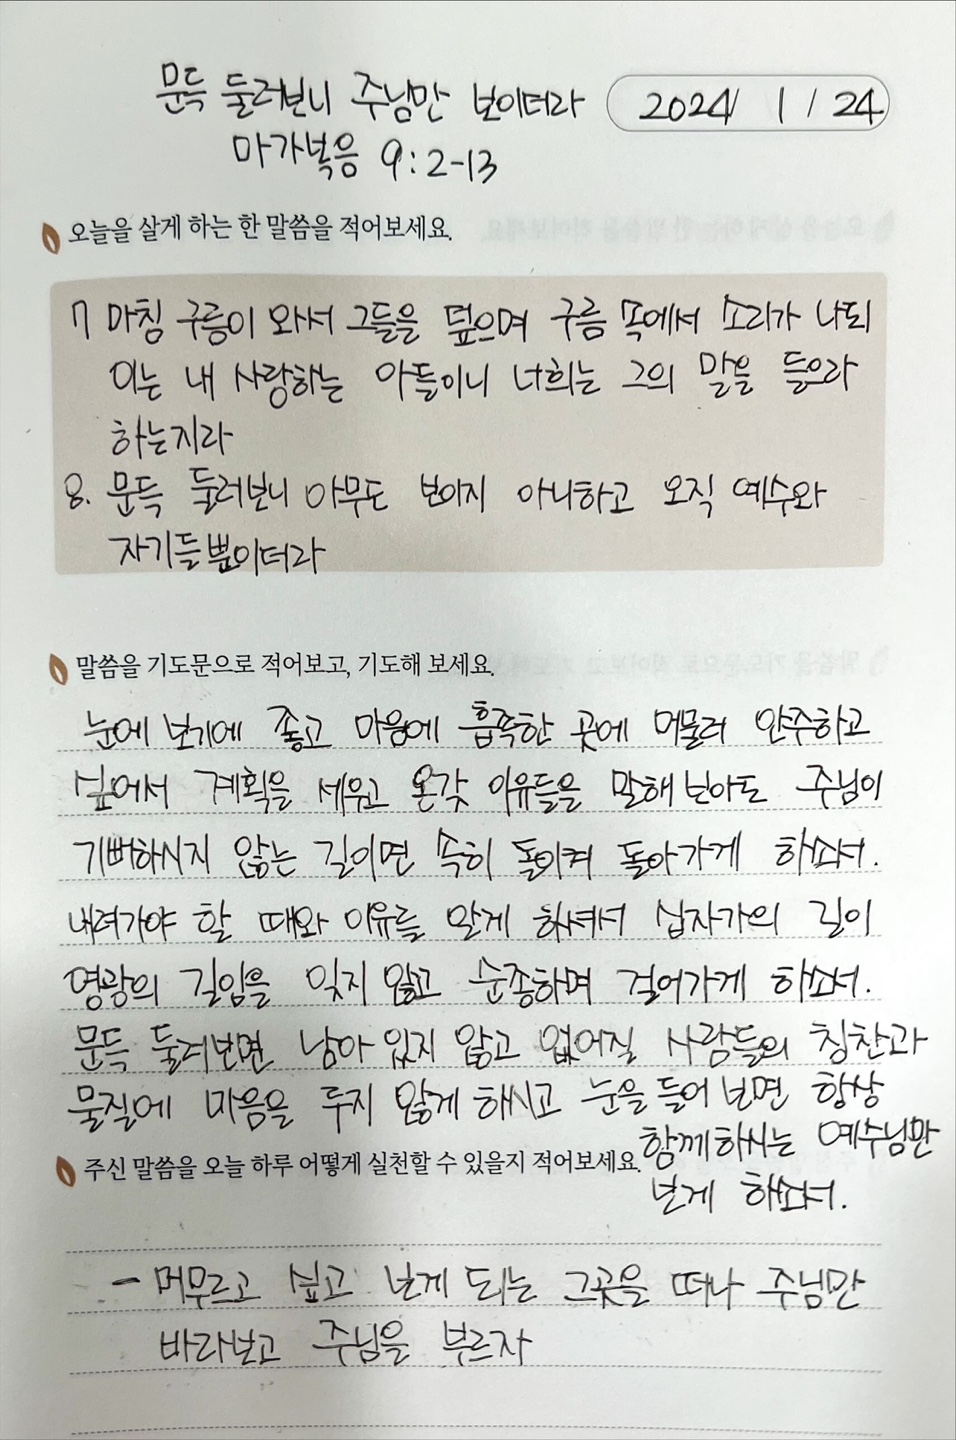 문득 둘러보니 주님만 보이더라
2024 1 / 24
마가복음 9:2-13
오늘을 살게 하는 한 말씀을 적어보세요.
7 마침 구름이 와서 그들을 덮으며 구름 속에서 소리가 나되
이는 내 사랑하는 아들이니 너희는 그의 말을 들으라
하는지라
8. 문득 둘러보니 아무도 보이지 아니하고 오직 예수와
자기들뿐이더라
말씀을 기도문으로 적어보고, 기도해 보세요.
눈에 보기에 좋고 마음에 흡족한 곳에 머물러 안주하고
싶어서 계획을 세우고 온갖 이유들을 말해보아도 주님이
기뻐하시지 않는 길이면 속히 돌이켜 돌아가게 하소서.
내려가야 할 때와 이유를 알게 하셔서 십자가의 길이
영광의 길임을 잊지 않고 순종하며 걸어가게 하소서.
문득 둘러보면 남아 있지 않고 없어질 사람들의 칭찬과
물질에 마음을 두지 않게 하시고 눈을 들어 보면 항상
함께하시는 예수님만
보게 하소서.
주신 말씀을 오늘 하루 어떻게 실천할 수 있을지 적어보세요.
- 머무르고 싶고 보게 되는 그곳을 떠나 주님만
바라보고 주님을 부르자